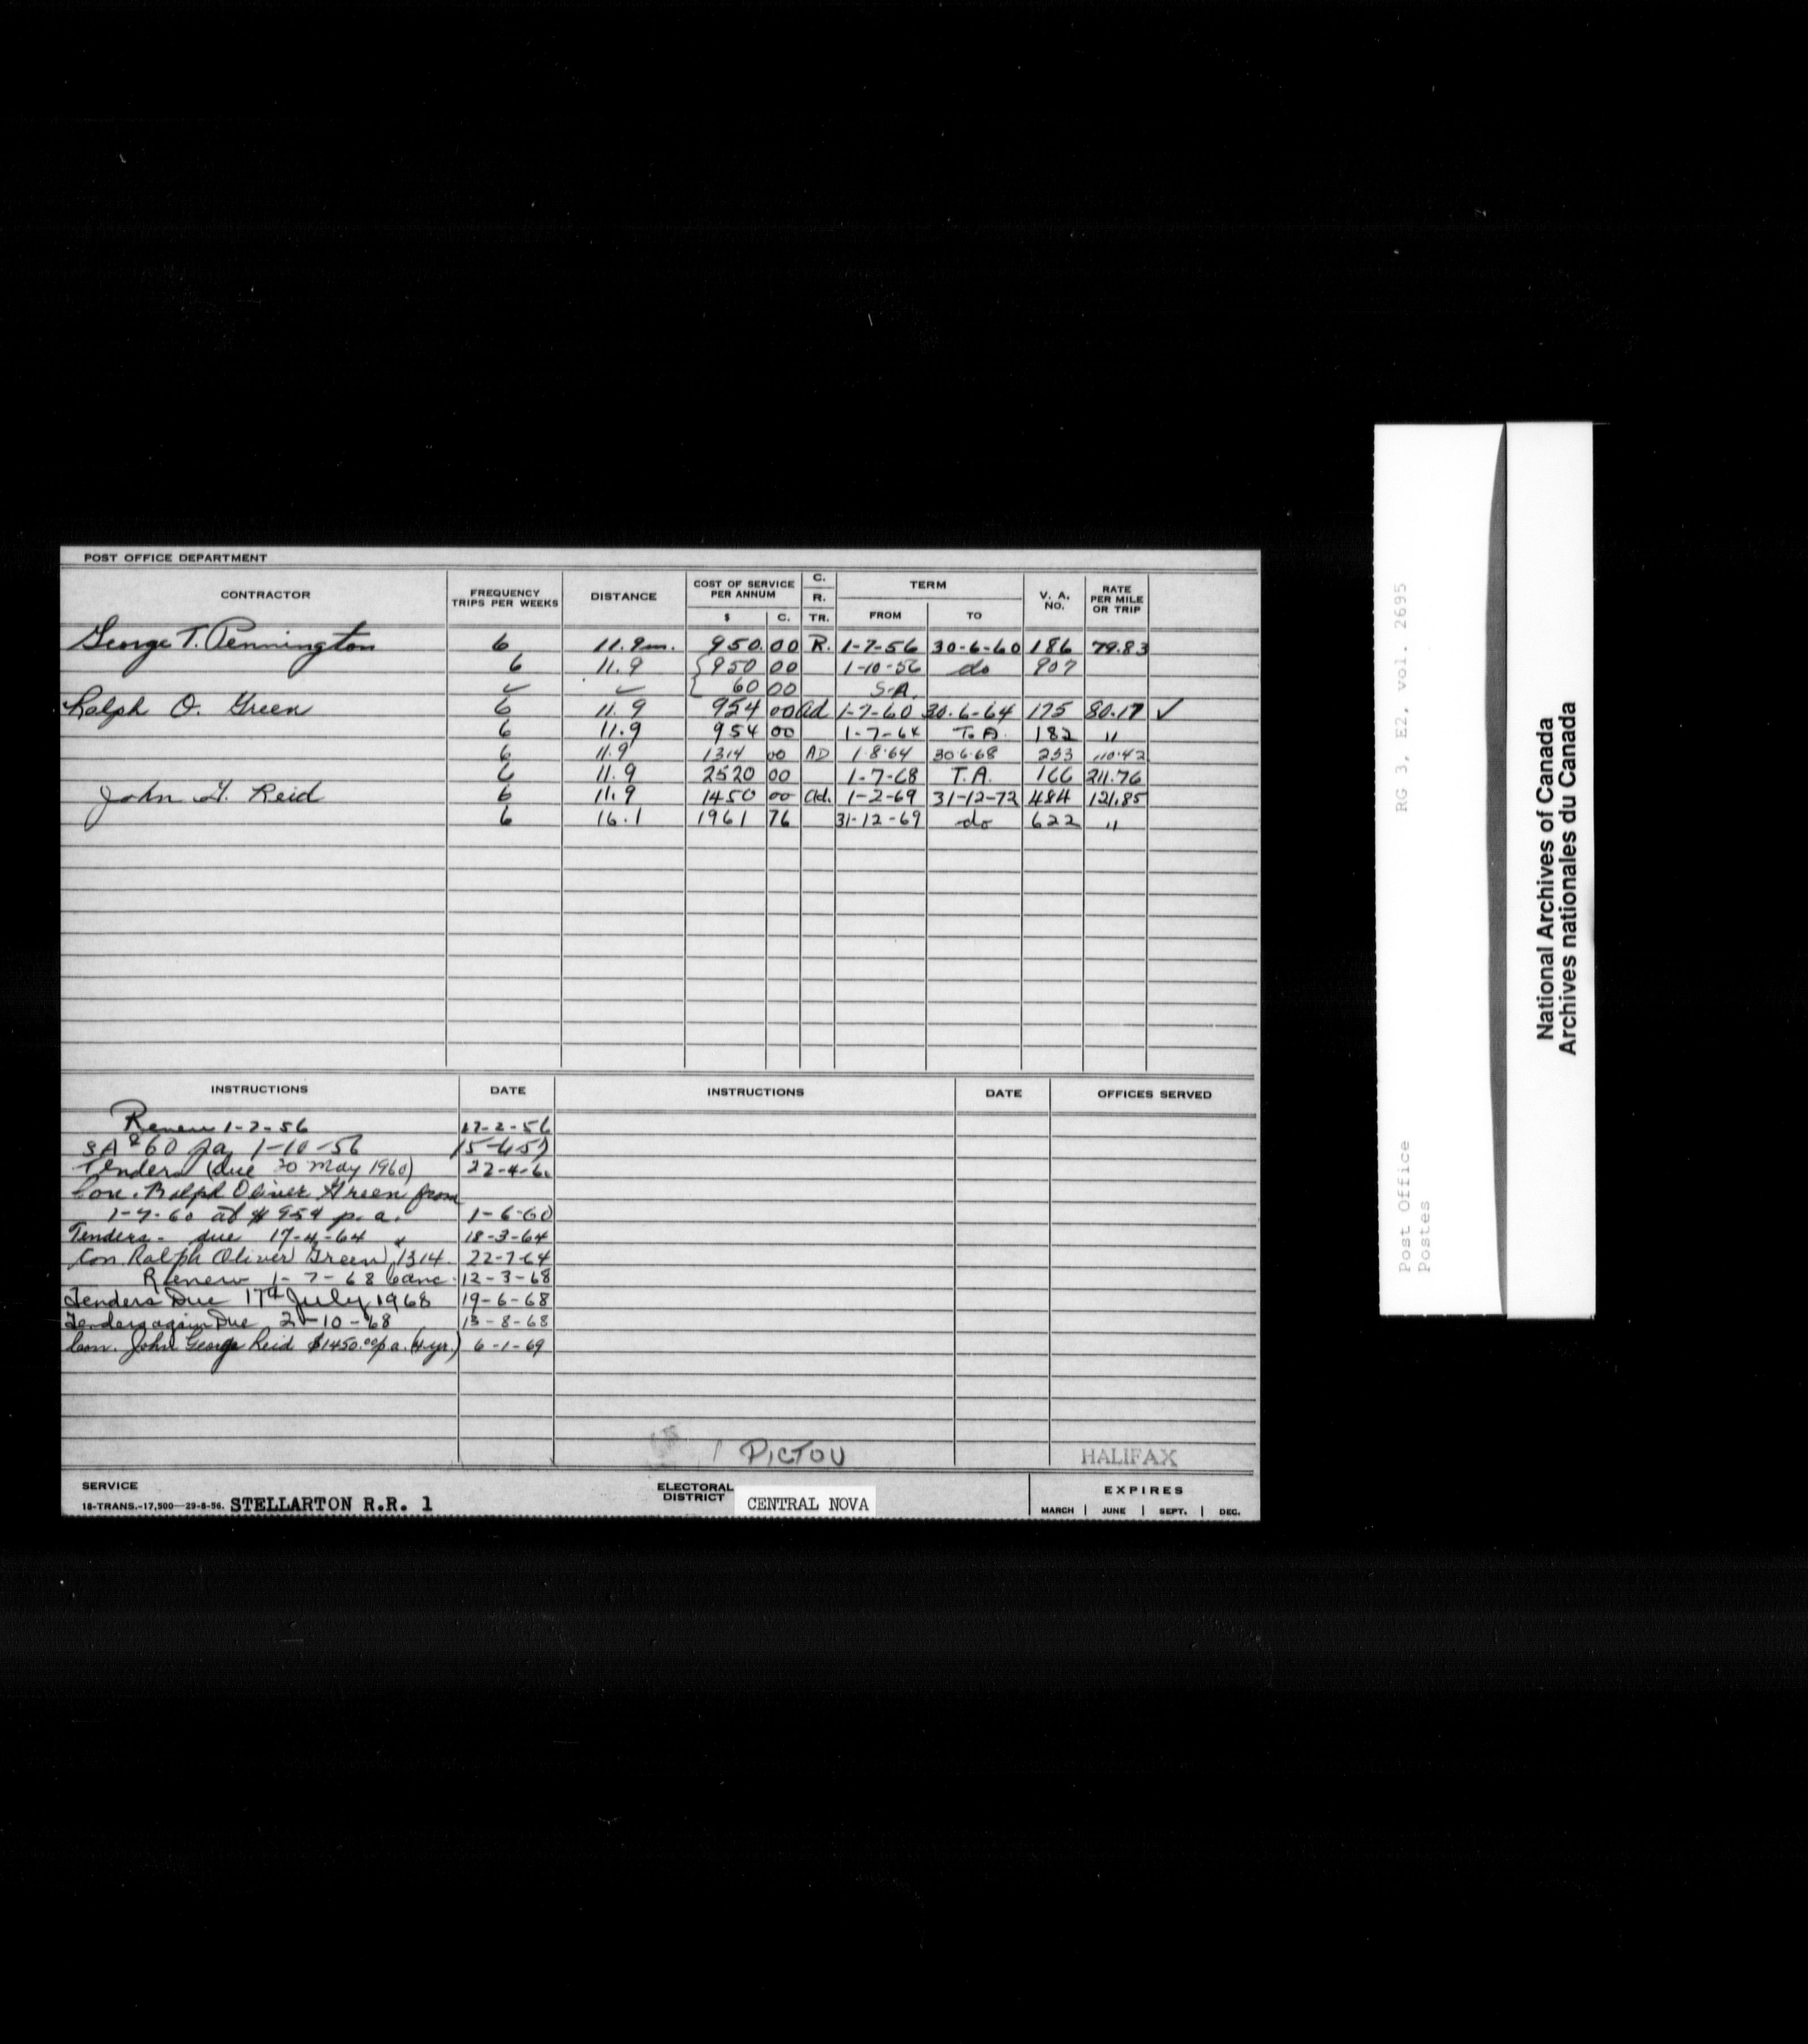 POST OFFICE DEPARTMENT
CONTRACTOR FREQUENCY TRIPS PER WEEKS DISTANCE COST OF SERVICE PER ANNUM $ C. C. R. TR. TERM FROM TO V. A. NO. RATE PER MILE OR TRIP
George T. Pennington 6 11.9m. 950.00 R. 1-7-56 30-6-60 186 79.83
6 11.9 {950 00 1-10-56 do 907
✓ ✓ 60 00 S.A.
Ralph O. Green 6 11.9 954 00 Ad 1-7-60 30-6-64 175 80.17 ✓
6 11.9 954 00 1-7-64 T.A. 182 "
6 11.9 1314 00 AD 1-8-64 30-6-68 253 110.42
6 11.9 2520 00 1-7-68 T.A. 166 211.76
John G. Reid 6 11.9 1450 00 Ad. 1-2-69 31-12-72 484 121.85
6 16.1 1961 76 31-12-69 do 622 "
INSTRUCTIONS DATE INSTRUCTIONS DATE OFFICES SERVED
Renew 1-7-56 17-2-56
SA $60 pa 1-10-56 15-4-57
Tenders (due 20 May 1960) 22-4-60
Con. Ralph Oliver Green from
1-7-60 at $954 p.a. 1-6-60
Tenders - due 17-4-64 18-3-64
Con Ralph Oliver Green 1314. 22-7-64
Renew 1-7-68 12-3-68
Tenders Due 17th July 1968 19-6-68
Tenders again Due 2-10-68 13-8-68
Con. John George Reid $1450.00 p.a. (4 yr.) 6-1-69
PICTOU HALIFAX
SERVICE
18-TRANS.-17,500—29-8-56. STELLARTON R.R. 1
ELECTORAL DISTRICT CENTRAL NOVA
EXPIRES
MARCH | JUNE | SEPT. | DEC.
RG 3, E2, vol. 2695
Post Office
Postes
National Archives of Canada
Archives nationales du Canada